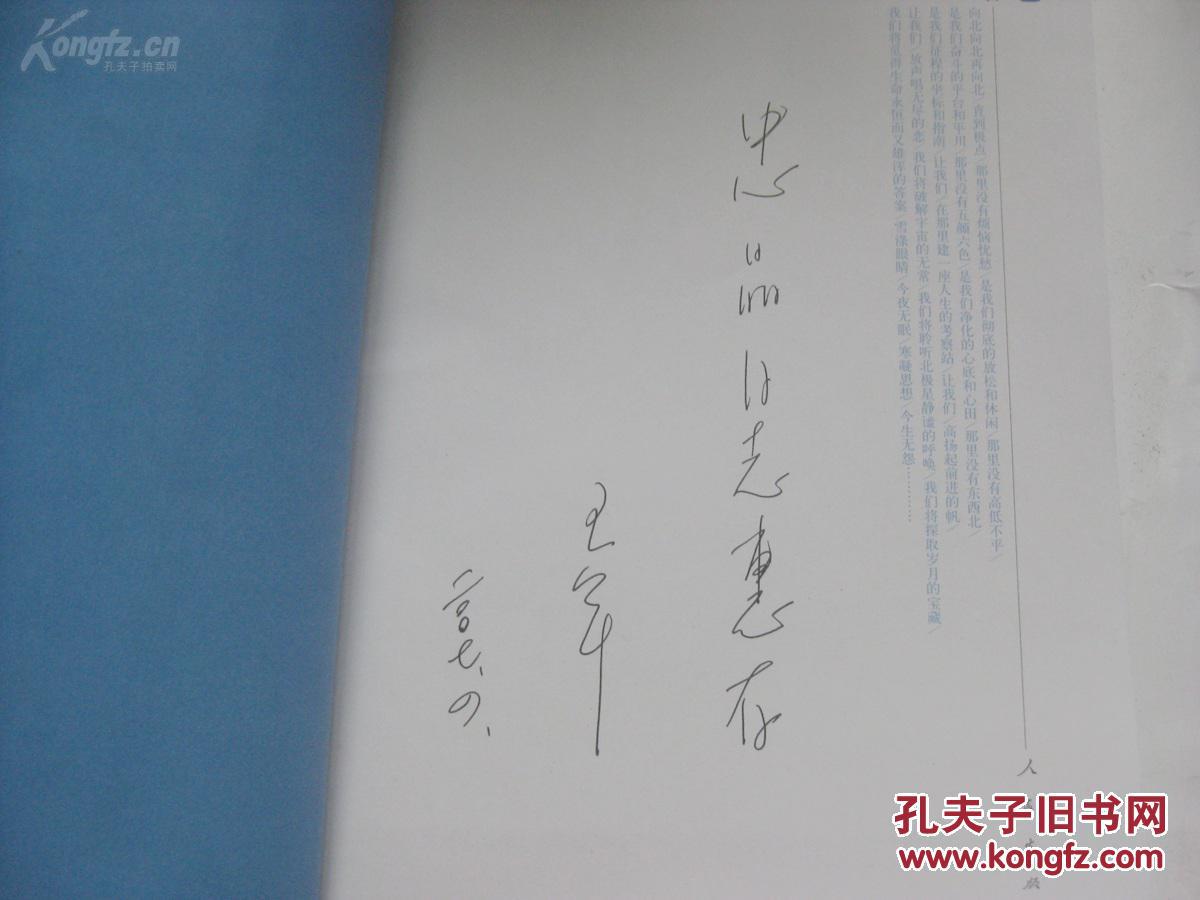 Kongfz.cn
孔夫子拍卖网
向北向北再向北/直到极点/那里没有烦恼忧愁/是我们彻底的放松和休闲/那里没有高低不平/
是我们奋斗的平台和平川/那里没有五颜六色/是我们净化的心底和心田/那里没有东西北/
是我们征程的坐标和指南/让我们/在那里建一座人生的考察站/让我们/高扬起前进的帆/
让我们/放声唱无尽的恋/我们将破解宇宙的无常/我们将聆听北极星静谧的呼唤/我们将探取岁月的宝藏/
我们将赢得生命永恒而又雄浑的答案/雪涤眼睛/今夜无眠/寒凝思想/今生无怨…………
忠品同志惠存
王军
二〇〇七、四、
孔夫子旧书网
www.kongfz.com